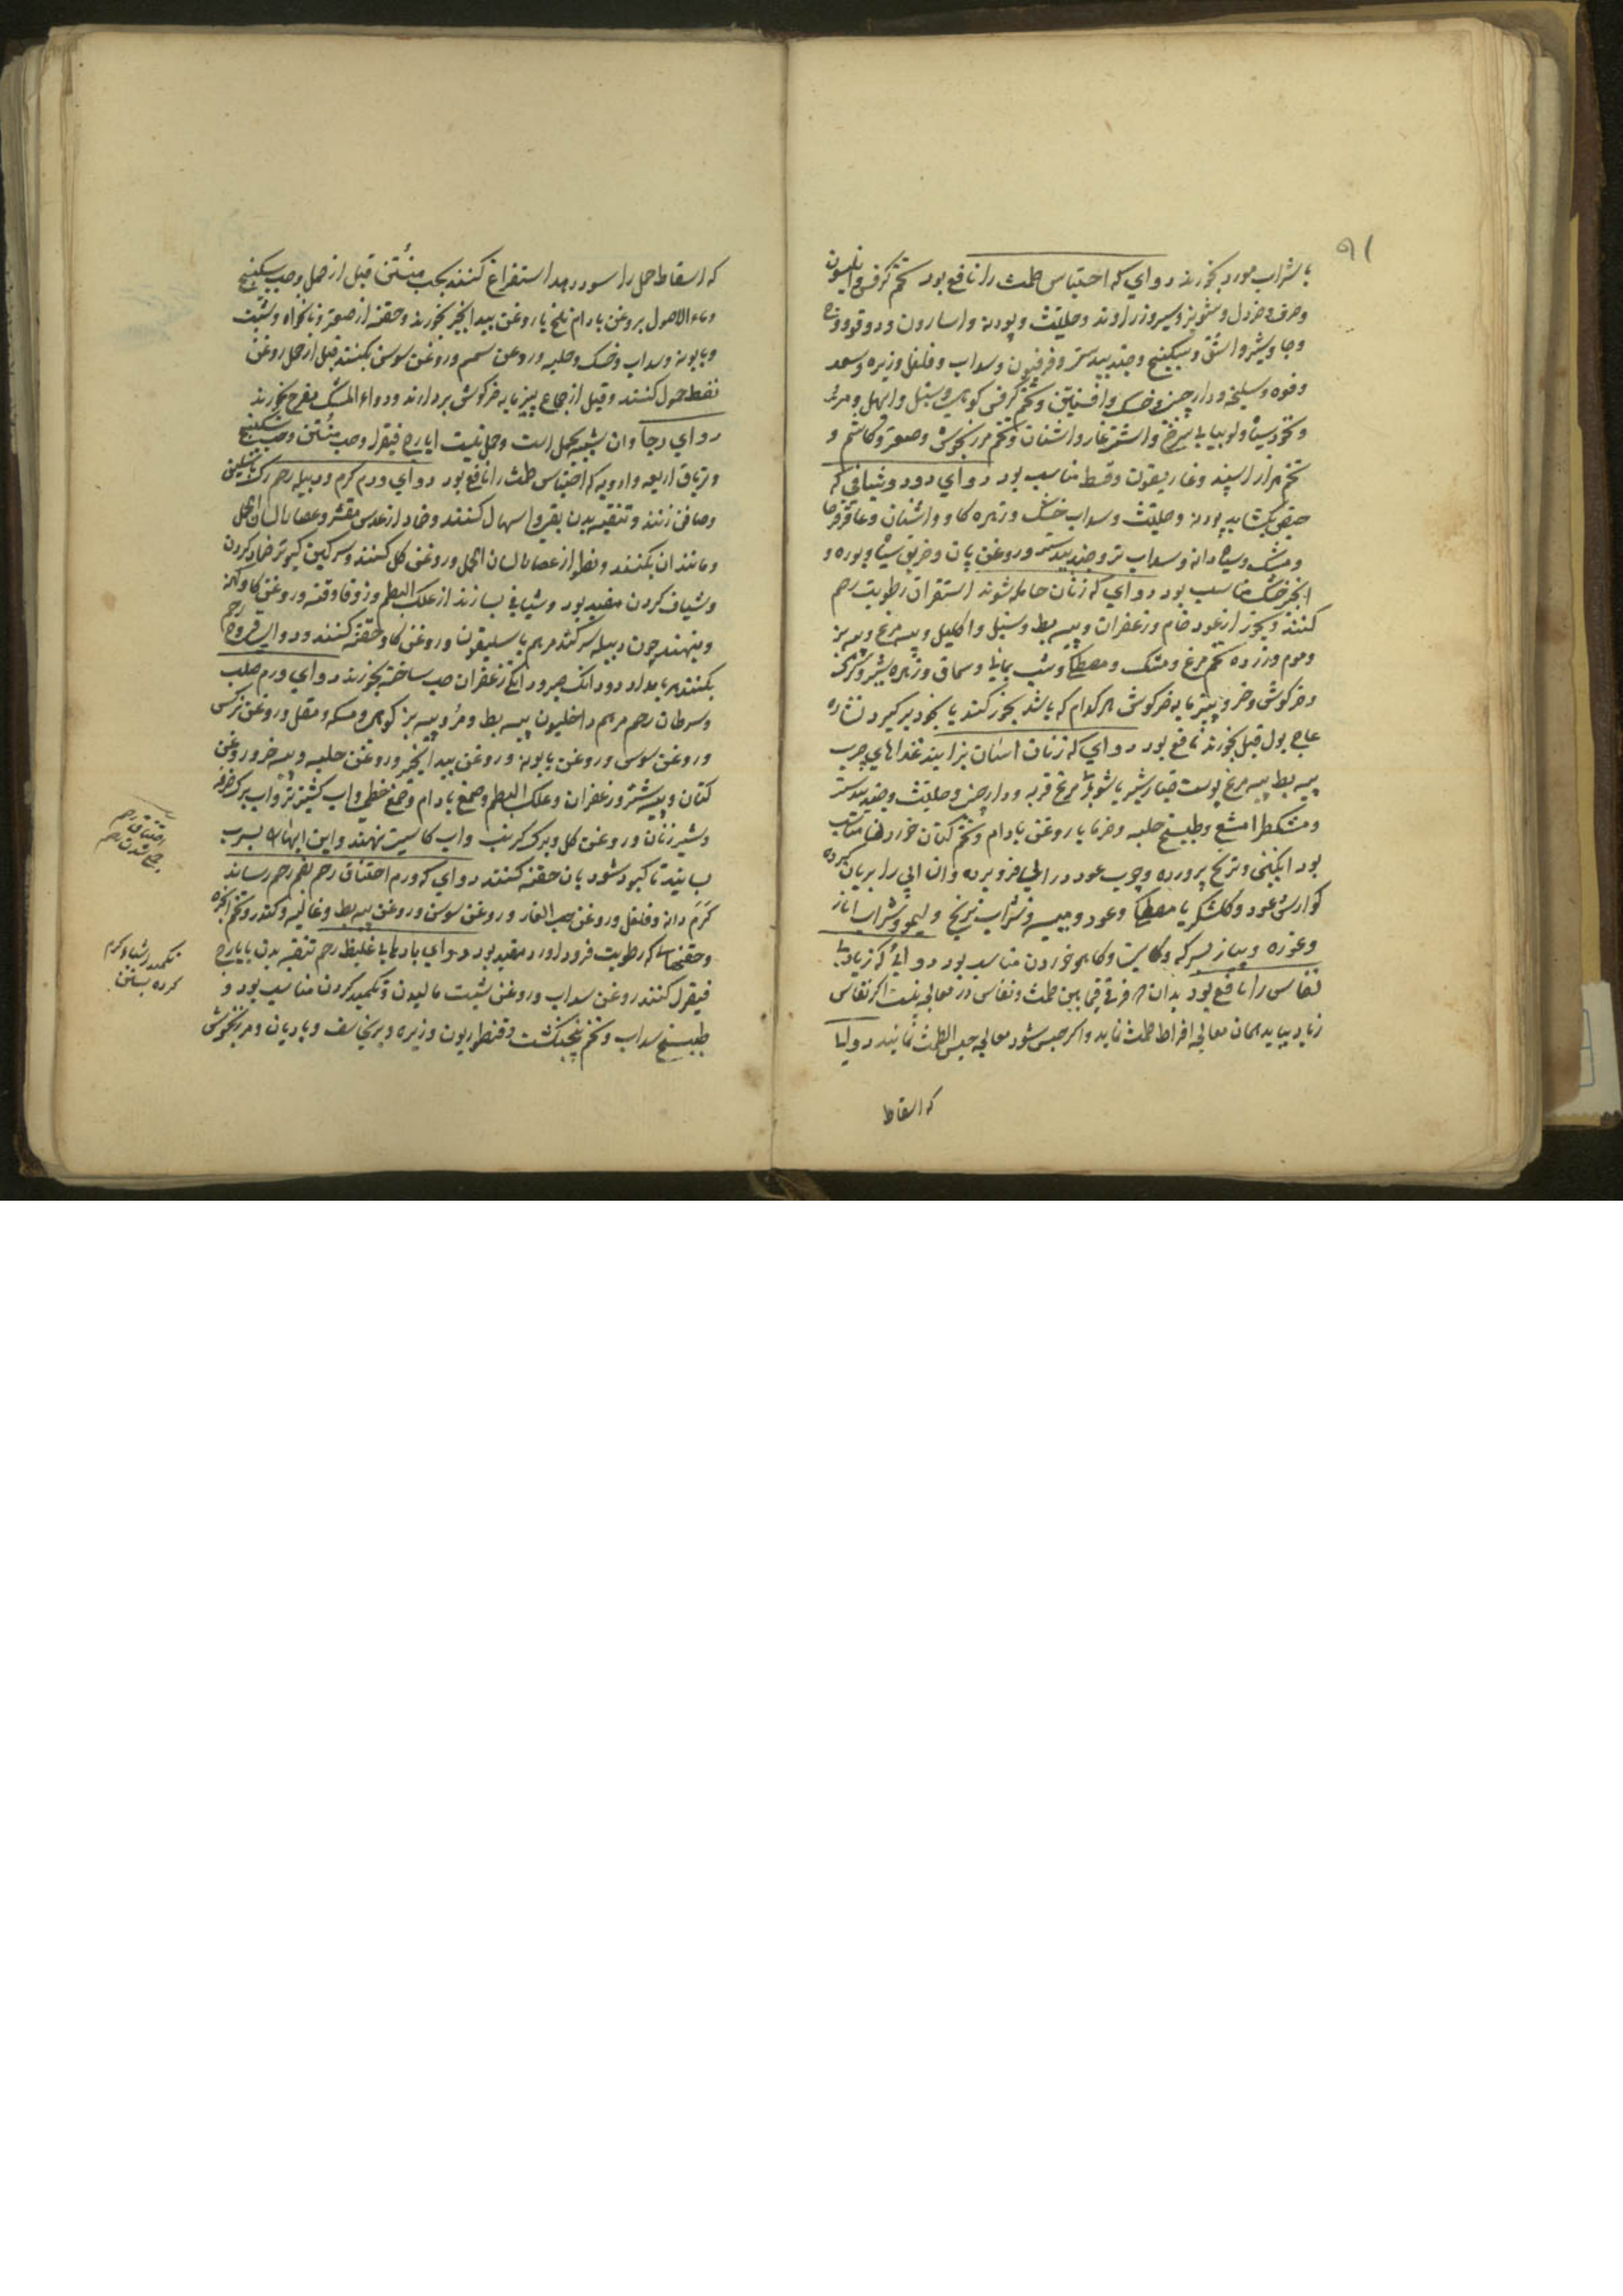 ۹۱
با شراب مورد بخورند دوای که احتباس طمث را نافع بود تخم کرفس و انیسون
و حرف و خردل و شونیز و سیر و زراوند و حلتیت و پودنه و اسارون و دوقو
و جاوشیر و اشق و سکبینج و جندبیدستر و فرفیون و سداب و فلفل و زیره و سعد
و فوه و سلیخه و دارچینی و خسک و افسنتین و تخم کرفس کوهی و سنبل و ابهل و
و نخود سیاه و لوبیا با سرخ و اشنان و تخم مرزنجوش و صعتر و کاشم و
تخم هزار اسپند و غاریقون و قسط مناسب بود دوای دود و شیافی که
حیض بکشاید پودنه و حلتیت و سداب خشک و زهره کاو و اشنان و عاقرقرحا
و مشک و سیاه دانه و سداب تر و جندبیدستر و روغن بان و خربق سیاه و بوره و
انجیر خشک مناسب بود دوای که زنان حامله شوند استفراق رطوبت رحم
کنند و بخور از عود خام و زعفران و پیه بط و سنبل و اکلیل و پیه مرغ و پیه بز
و موم و زرده تخم مرغ و مشک و مصطکی و شب یمانی و سماق و زهره شیر و کرک
و خرکوش و پنیرمایه خرکوش هر کدام که باشد بخور کنند یا بخود برکیرد نشاره
عاج بول فیل بخورند نافع بود دوای که زنان آسان بزایند غذاهای چرب
پیه بط پیه مرغ پوست خیارشنبر با شوربا مرغ فربه و دارچینی و حلتیت و جندبیدستر
و مشکطرامشیع و طبیخ حلبه و خرما با روغن بادام و تخم کتان خوردن مناسب
بود و ترنج پرورده و چوب عود در فرو برده و آن را بریان کرده
کوارش عود و کلشکر با مصطکی و عود و میبه و شراب ترنج و لیمو و شراب انار
و غوره و پیاز بسرکه و کاهو خوردن مناسب بود دوای که زیادتی
نفاس را نافع بود بدان که فرقی مابین طمث و نفاس در معالجه نیست اکر نفاس
زیاد بیاید همان معالجه افراط طمث نماید و اکر حبس شود معالجه حبس الطمث نمایند دوایی
که اسقاط
که اسقاط حمل را سود دهد استفراغ کنند بحب منتن قبل از حمل و حب سکبینج
و ماء الاصول بروغن بادام تلخ یا روغن بید انجیر بخورند و حقنه از صعتر و نانخواه و شبت
و بابونه و سداب و خسک و حلبه و روغن سمسم و روغن سوسن بکنند قبل از حمل روغن
نفط حمول کنند و قبل از جماع پنیرمایه خرکوش بردارند و دواء المسک مفرح بخورند
دوای رجا و ان شبیه بحمل است و حمل نیست ایارج فیقرا و حب منتن و حب سکبینج
و تریاق اربعه و ادویه که احتباس طمث را نافع بود دوای ورم کرم و دبیله رحم
و صافن زنند و تنقیه بدن بقی و اسهال کنند و ضماد از عدس مقشر و عصاره لسان الحمل
و مانند آن بکنند و نطول از عصاره لسان الحمل و روغن کل کنند و سرکین کبوتر ضماد کردن
و شیاف کردن مفید بود و شیافی بسازند از علک البطم و زوفا و قنه و روغن کاو
و بنهند چون دبیله سر کند مرهم باسلیقون و روغن کاو حقنه کنند و دوای قروح رحم
بکنند هر بامداد دو دانک صبر و دانکی زعفران حب ساخته بخورند دوای ورم صلب
و سرطان رحم مرهم داخلیون پیه بط و مر و پیه بز کوهی و مسکه و مقل و روغن نرکس
و روغن سوسن و روغن بابونه و روغن بید انجیر و روغن حلبه و پیه خر و روغن
کتان و پیه شتر و زعفران و علک البطم و صمغ بادام و صمغ خطمی و آب کشنیز تر و آب برک خرفه
و شیر زنان و روغن کل و برک کرنب و آب کاسنی نهند و این ابها را بسرب
بسایند تا کبود شود بان حقنه کنند دوای که ورم اختناق رحم بفم رحم رساند
کرم دانه و فلفل و روغن حب الغار و روغن سوسن و روغن پیه بط و غالیه و کندر و تخم انجره
و حقنها که رطوبت فرود آورد مفید بود دوای بادها غلیظ رحم تنقیه بدن بایارج
فیقرا کنند روغن سداب و روغن شبت مالیدن و تکمید کردن مناسب بود و
طبیخ سداب و تخم پنجنکشت و قنطوریون و زیره و برنجاسف و بادیان و مرزنجوش
اختناق رحم
تکمید اشیاء کرم
کرده بستن